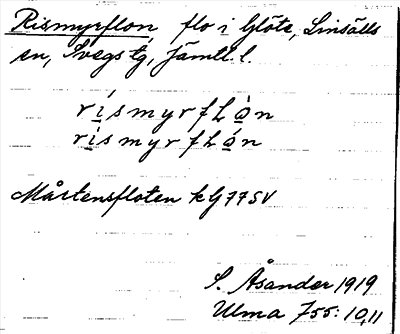 Rismyrflon, flo i Glöte, Linsälls
sn, Svegs tg, Jämtl. l.
rísmyrfLòn
rísmyrfLón
Mårtensfloten k G 77 SV
S. Åsander 1919
Ulma 755: 10,11